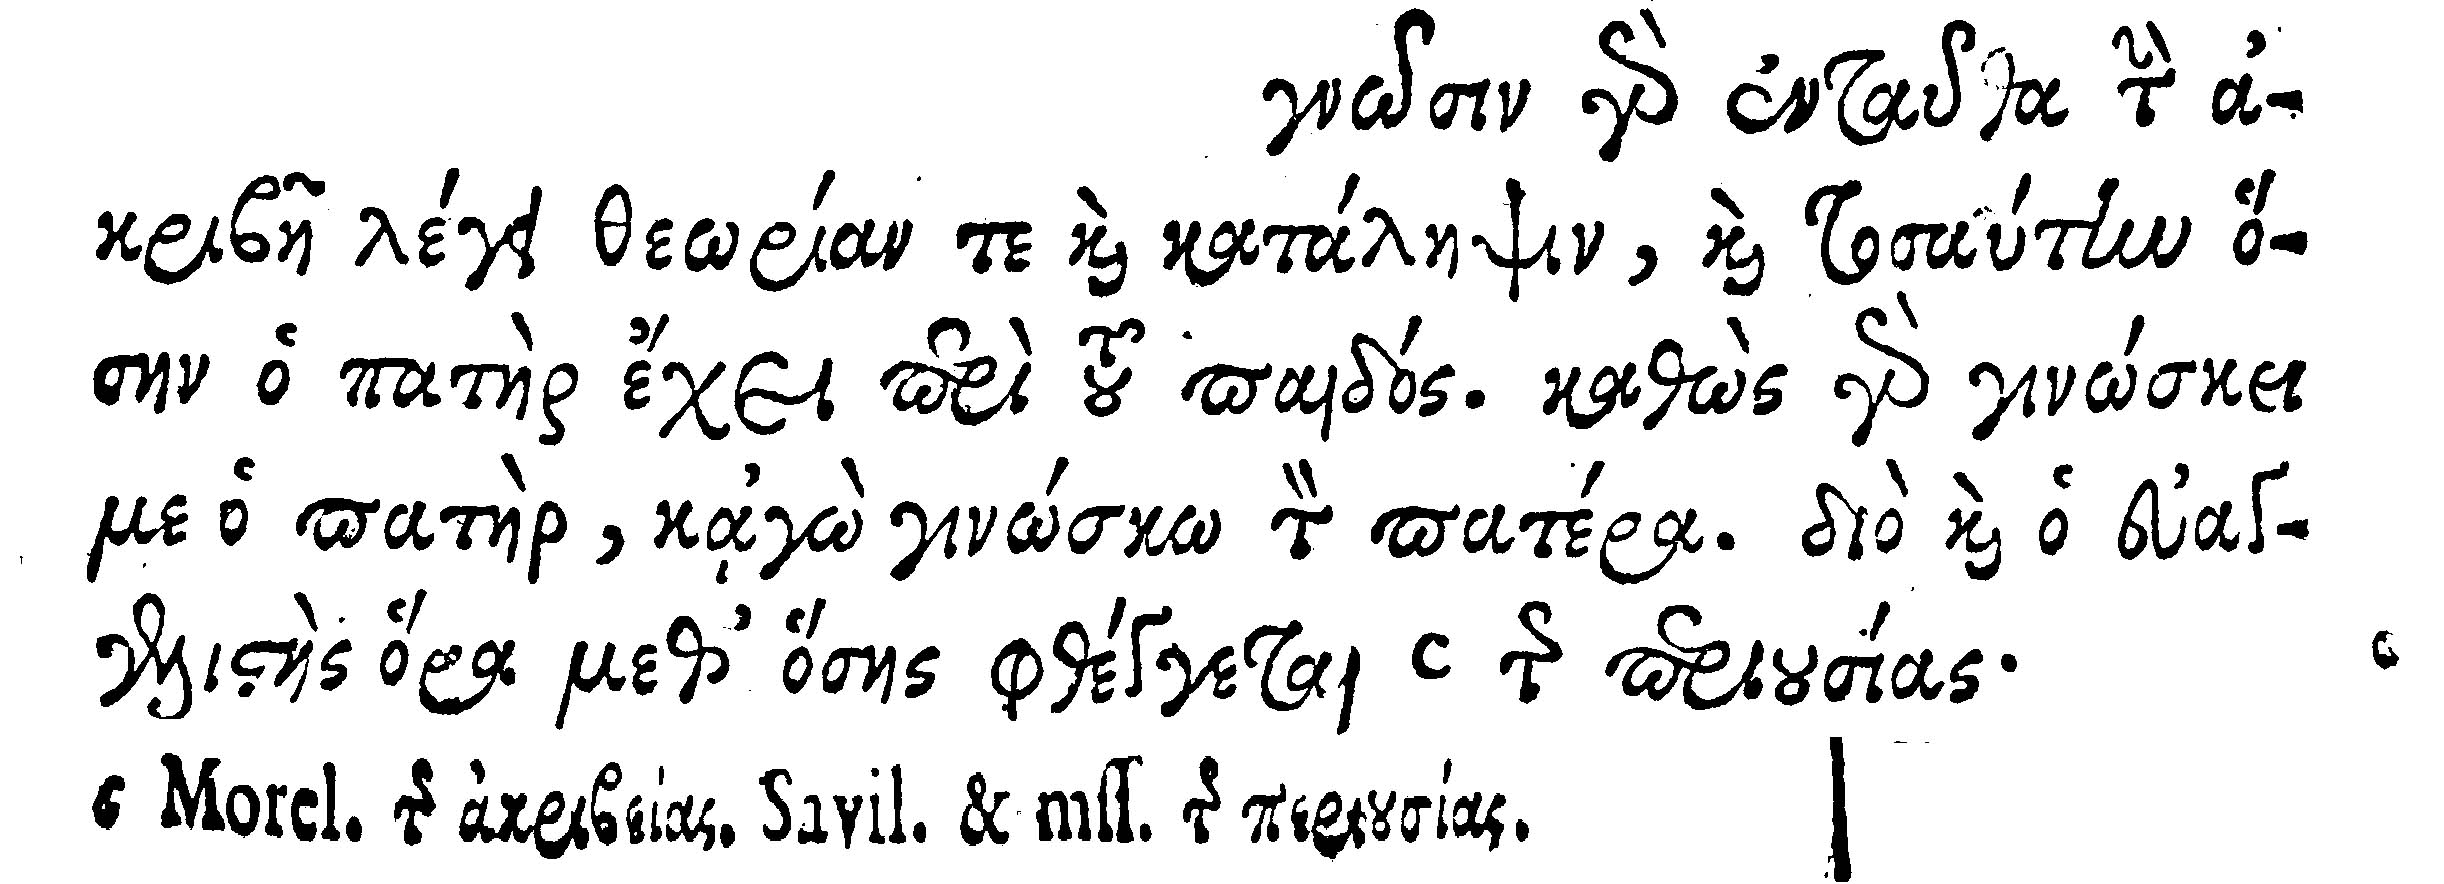 γνῶσιν γὰρ ἐνταῦθα τὴν ἀ-
κριβῆ λέγει θεωρίαν τε καὶ κατάληψιν, καὶ τοσαύτην ὅ-
σην ὁ πατὴρ ἔχει περὶ τοῦ παιδός. καθὼς γὰρ γινώσκει
με ὁ πατὴρ, κᾀγὼ γινώσκω τὸν πατέρα. διὸ καὶ ὁ εὐαγ-
γελιστὴς ὅρα μεθ᾽ ὅσης φθέγγεται c τῆς περιουσίας· c
c Morel. τῆς ἀκριβείας. Savil. & mss. τῆς περιουσίας.